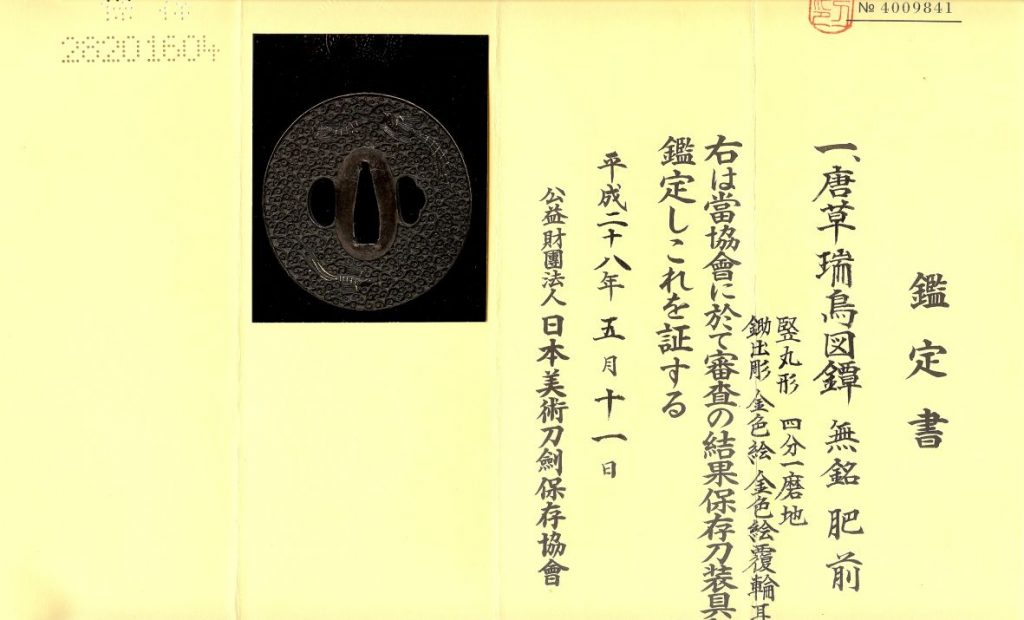 № 4009841
鑑定書
一、唐草瑞鳥図鐔 無銘 肥前
竪丸形 四分一磨地
鋤出彫 金色絵 金色絵覆輪耳
右は當協會に於て審査の結果保存刀装具
鑑定しこれを証する
平成二十八年五月十一日
公益財團法人日本美術刀劍保存協會
28201604